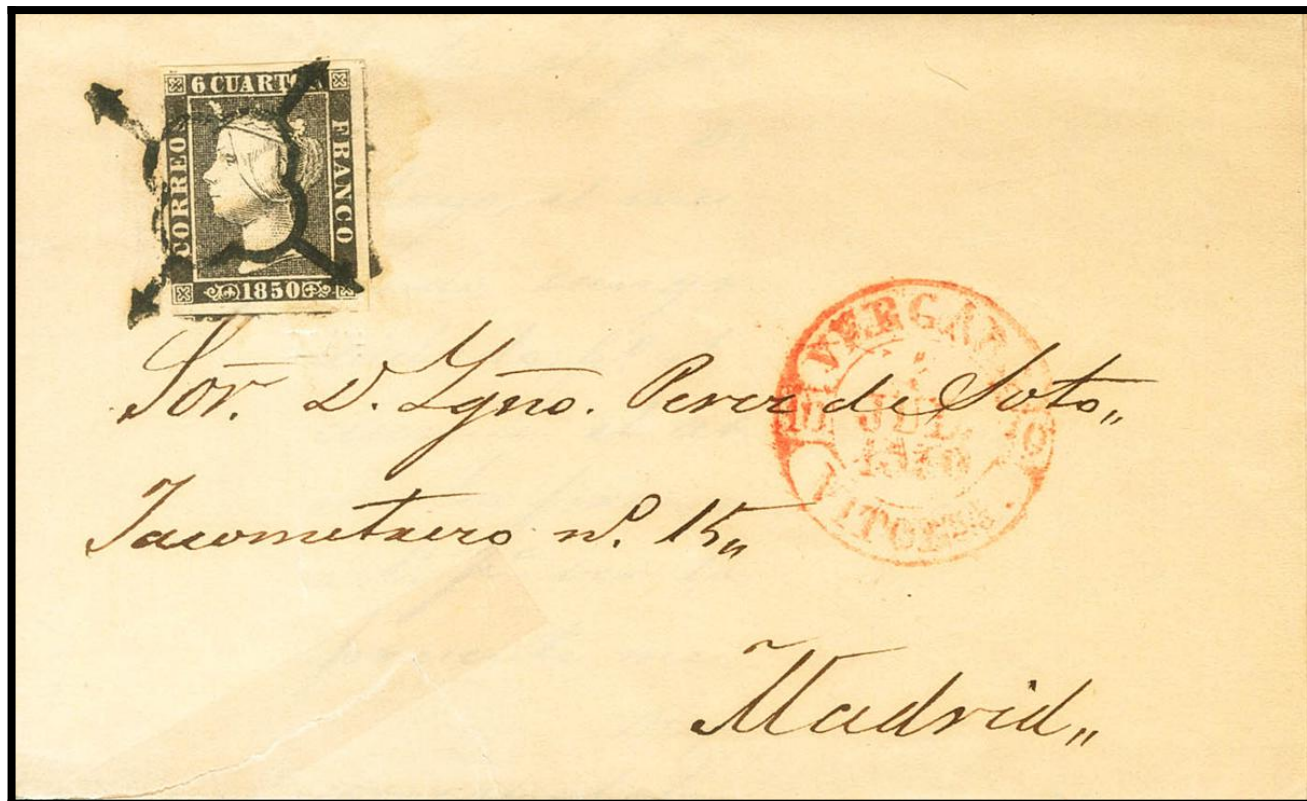 6 CUARTOS
CORREOS
FRANCO
1850
VERGARA
10 JUL. 10
1850
VITORIA.
Sor. D. Ygno. Perez de Soto„
Jacometrezo nº. 15„
Madrid„